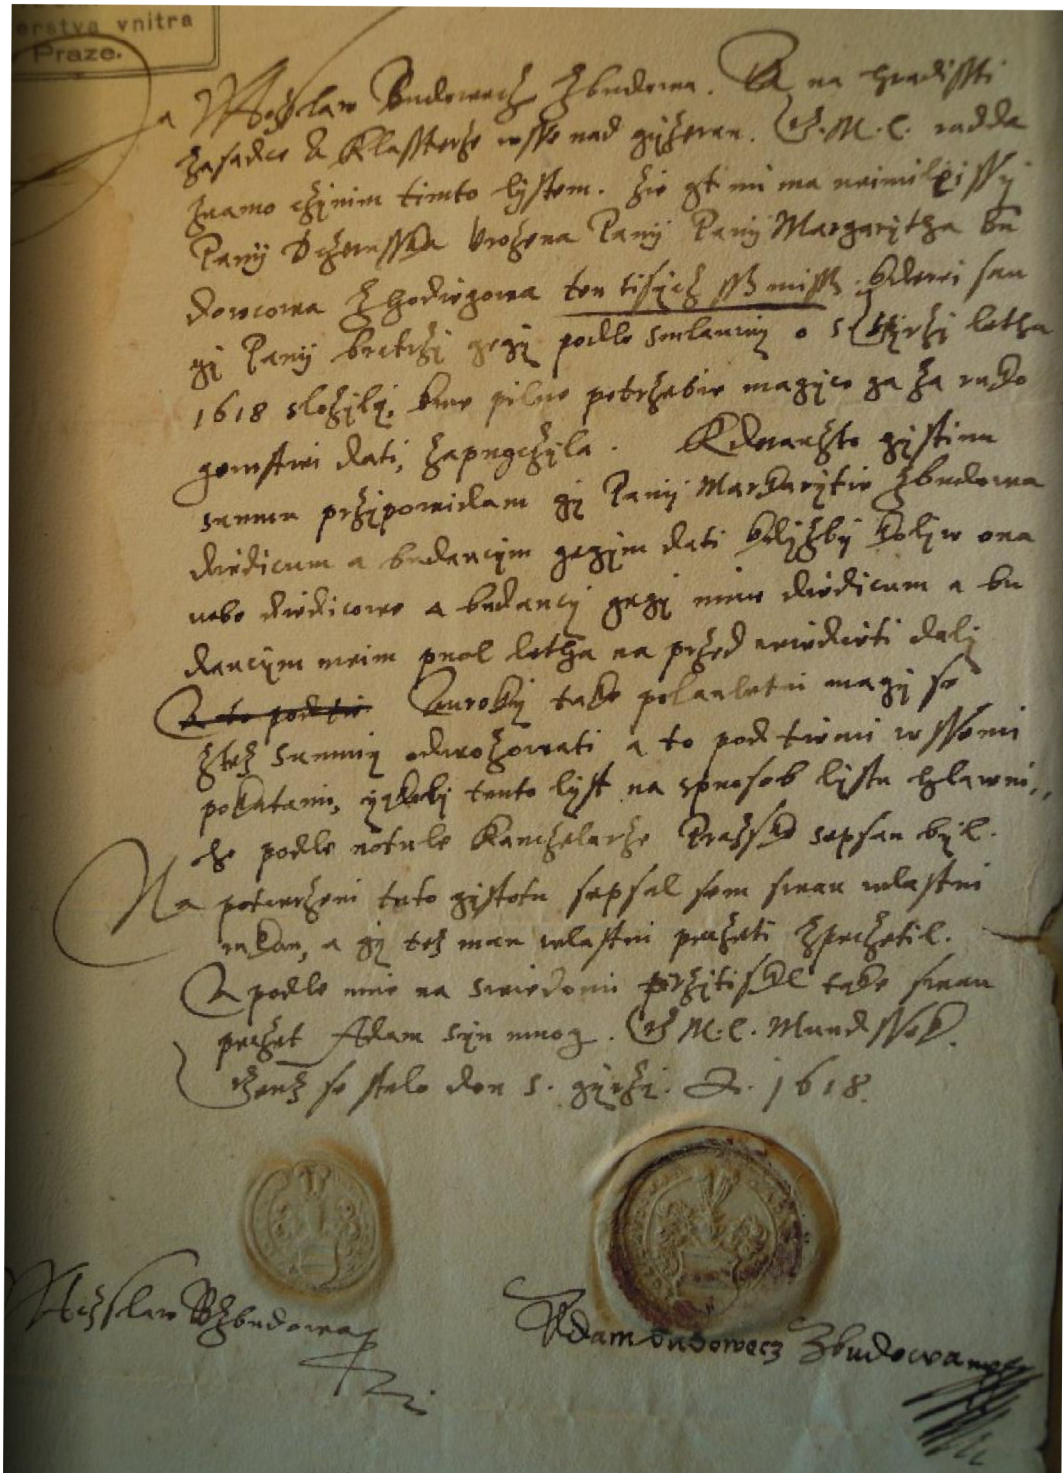 erstva vnitra
Praze.
a Waczslaw Budowecz Zbudowa. A na Hradissti
Zasadce & Klassterze wsse nad gyzeran. G. M. C. radda
znamo czynim timto lystem. Zie gt mi ma neimileissy
Panij Urozena Panij Panij Margarytha Bu
dowcowa Zhodiegowa ten tisycz ssz missz kterei sau
gij Panij bratrzi gegij podle smlauwy o S letha
1618 slozyly, kwe pilne potrzebie magijce ga za ruko
gemstwi dati, zapugczyla. Kderauzto gystinu
summu przipowidam gij Panij Markarytie Zbudowa
diedicum a budaucym gegym dati kdyzby kolyw ona
nebo diedicowe a budaucy gegij mnie diedicum a bu
daucym meim puol letha na przed wiedieti dalj
A to pod tie Auroky take polauletni magij se
ztez summy odwozowati a to pod tiemi wssemi
pokutami, yakoby tento lyst na spuosob lystu hlawni,
ho podle notule Kanczelarze Prazske sepsan byl.
Na potwrzeni teto gystotu sepsal sem swau wlastni
rukau, a gy tez mau wlastni peczeti zpeczetil.
A podle mne na swiedomi przitiskl take swau
peczet Adam syn muog. G M. C. Mundssek.
Genz se stalo den 5. gyrzi. A. 1618.
Waczslaw Bzbudowa
Adam budowecz Zbudowa mp